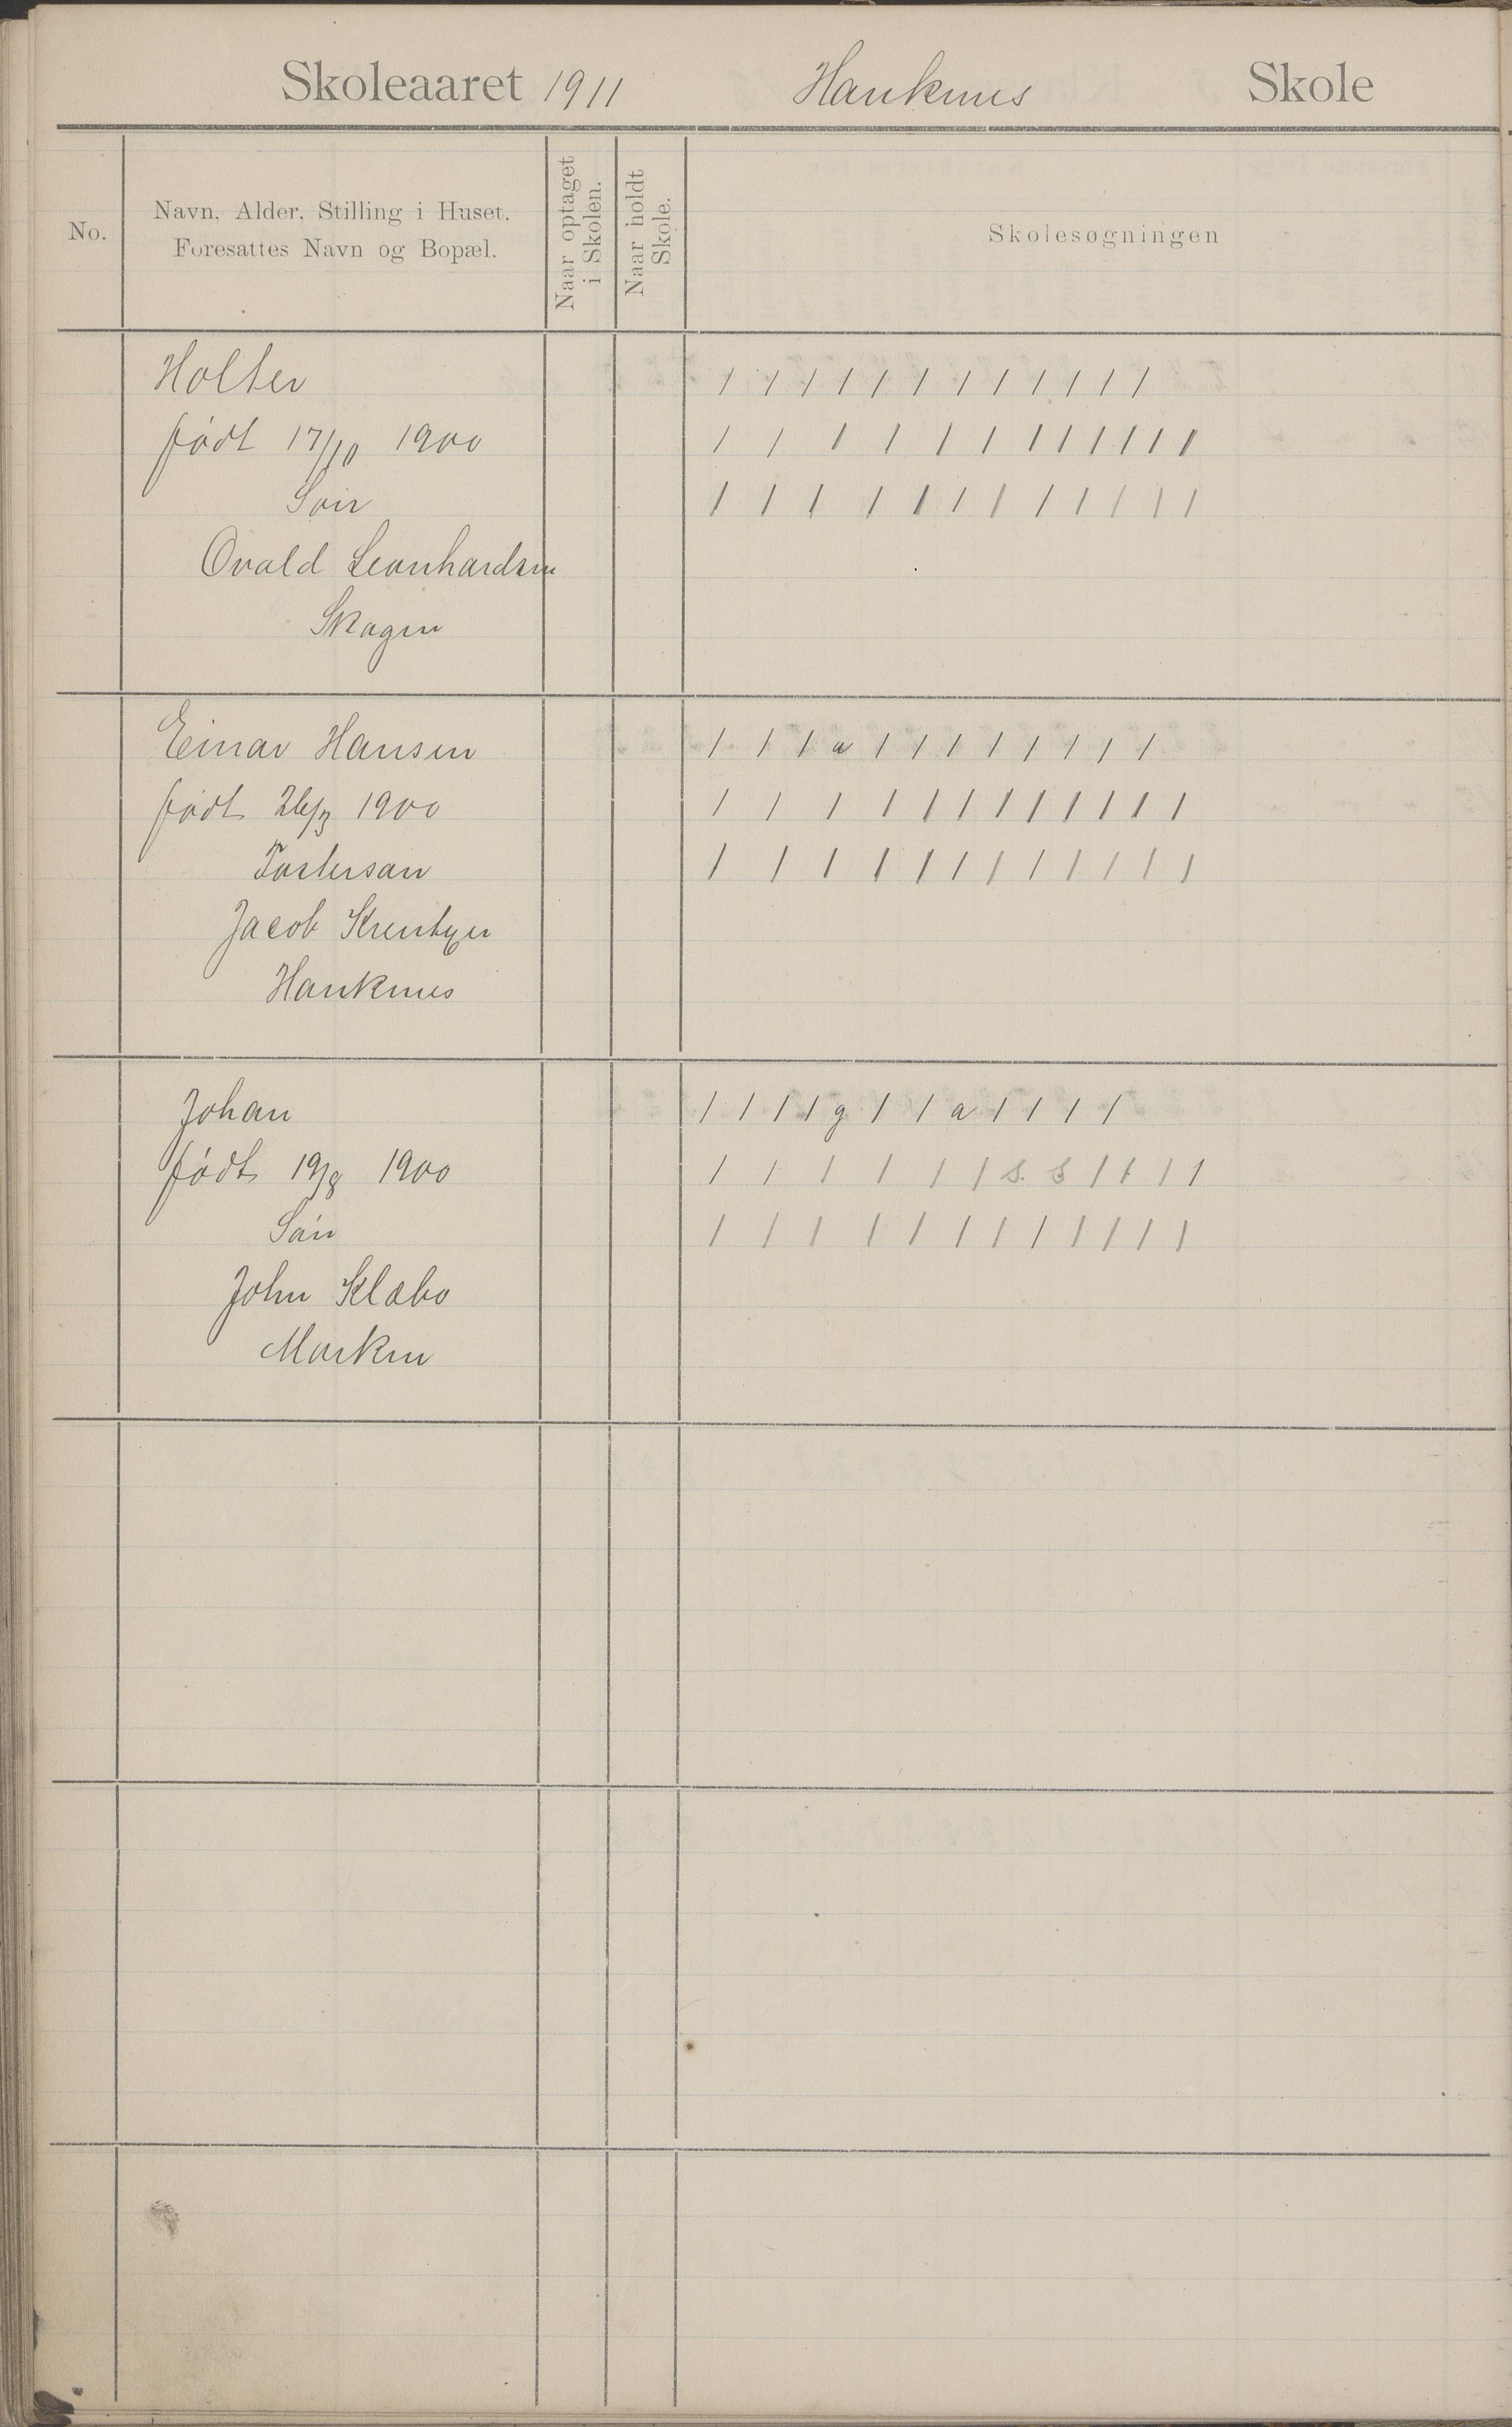 Skoleaaret 1911 Hauknes Skole
No.
Navn, Alder, Stilling i Huset.
Foresattes Navn og Bopæl.
Naar optaget
i Skolen.
Naar holdt
Skole.
Skolesøgningen
Holter / / / / / / / / / / / /
født 17/10 1900 / / / / / / / / / / / /
Søn / / / / / / / / / / / /
Ovald Leonhardsen
Skagen
Einar Hansen / / / a / / / / / / / /
født 26/3 1900 / / / / / / / / / / / /
Fostersøn / / / / / / / / / / / /
Jacob
Hauknes
Johan / / / / g / / a / / / /
født 19/8 1900 / / / / / / s. s / / / /
Søn / / / / / / / / / / / /
John Klæbo
Marken